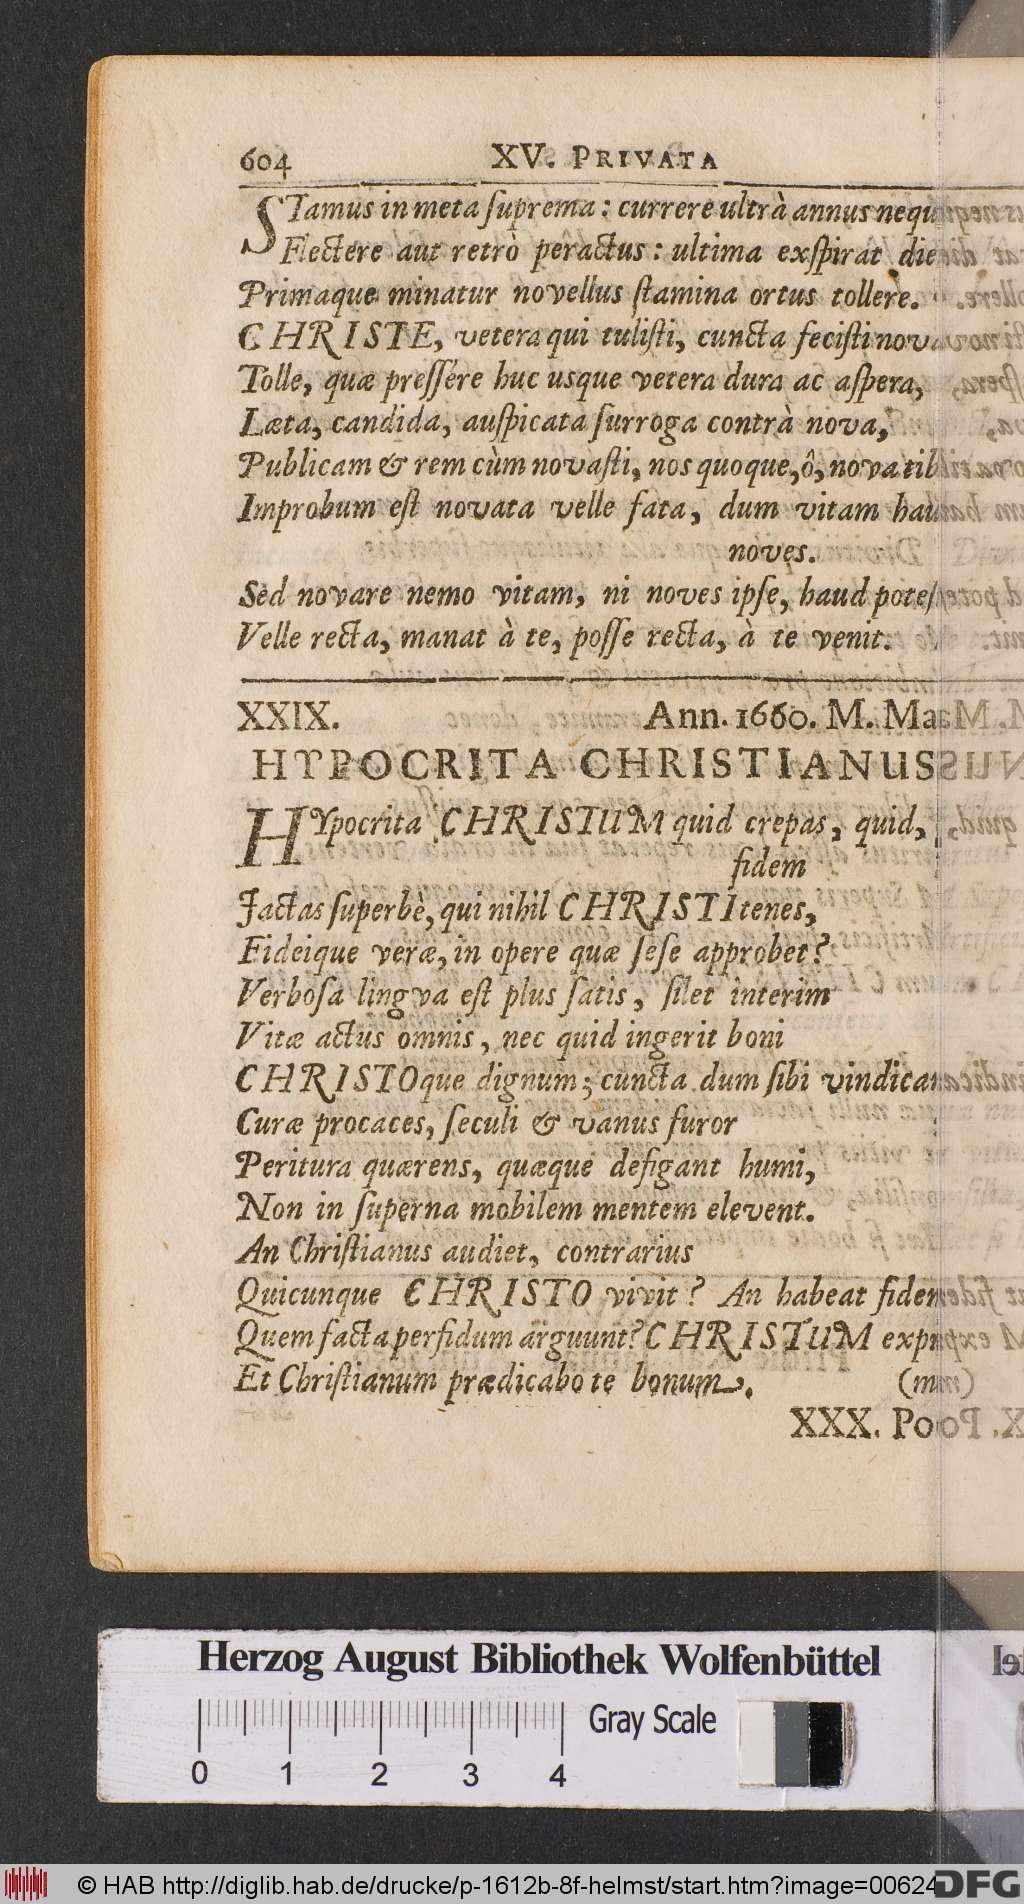 604 XV. PRIVATA
STamus in meta ſuprema: currere ultrà annus nequ
Flectere aut retrò peractus: ultima exſpirat die
Primaque minatur novellus ſtamina ortus tollere.
CHRISTE, vetera qui tuliſti, cuncta feciſti nova
Tolle, quæ preſſére huc usque vetera dura ac aſpera,
Læta, candida, auſpicata ſurroga contrà nova,
Publicam & rem cùm novaſti, nos quoque, ô, nova tib
Improbum eſt novata velle fata, dum vitam hau
noves.
Sed novare nemo vitam, ni noves ipſe, haud poteſ
Velle recta, manat à te, poſſe recta, à te venit.
XXIX. Ann. 1660. M. Ma
HYPOCRITA CHRISTIANUS
HYpocrita CHRISTUM quid crepas, quid,
fidem
Jactas ſuperbè, qui nihil CHRISTI tenes,
Fideique veræ, in opere quæ ſeſe approbet?
Verboſa lingva eſt plus ſatis, ſilet interim
Vitæ actus omnis, nec quid ingerit boni
CHRISTOque dignum; cuncta dum ſibi vindica
Curæ procaces, ſeculi & vanus furor
Peritura quærens, quæque defigant humi,
Non in ſuperna mobilem mentem elevent.
An Chriſtianus audiet, contrarius
Quicunque CHRISTO vivit? An habeat fidem
Quem facta perfidum arguunt? CHRISTUM exp
Et Chriſtianum prædicabo te bonum. (m
XXX. Po
Herzog August Bibliothek Wolfenbüttel
Gray Scale
0 1 2 3 4
© HAB http://diglib.hab.de/drucke/p-1612b-8f-helmst/start.htm?image=00624
DFG